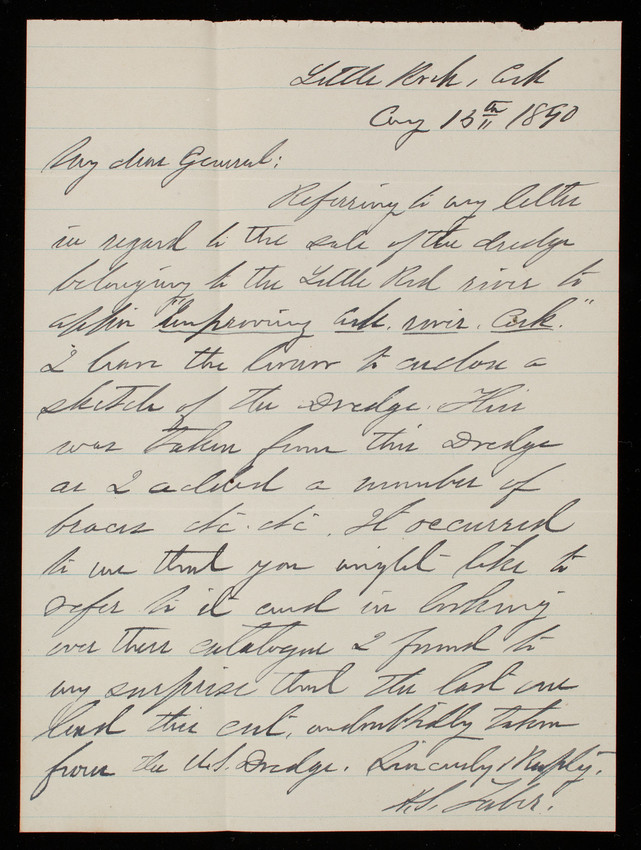 Little Rock, Ark
Aug 13th 1890
My dear General:
Referring to my letter
in regard to the sale of the dredge
belonging to the Little Red river to
appn "Improving Ark. river, Ark."
I have the honor to enclose a
sketch of the Dredge. This
was taken from this Dredge
as I added a number of
braces &c. &c. It occurred
to me that you might like to
refer to it and in looking
over their catalogue I found to
my surprise that the last one
had this cut, undoubtedly taken
from the U.S. Dredge. Sincerely & Respfly.
H.S. Taber.